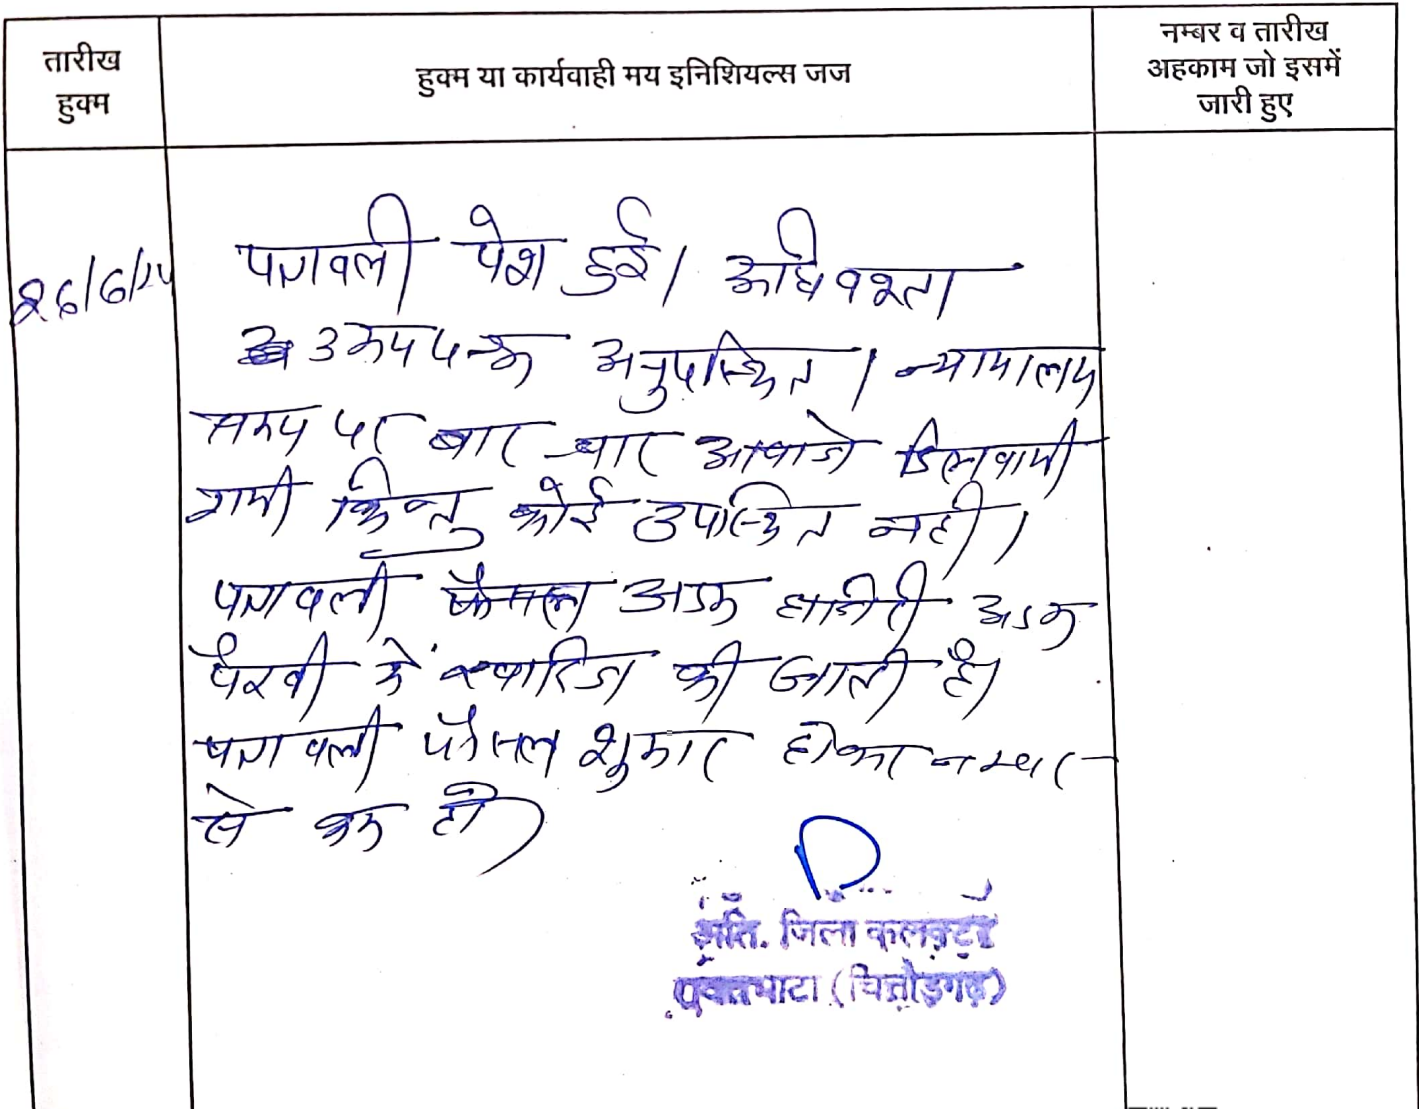 तारीख
हुक्म
हुक्म या कार्यवाही मय इनिशियल्स जज
नम्बर व तारीख
अहकाम जो इसमें
जारी हुए
26/6/24
पत्रावली पेश हुई। अधिवक्ता
उभयपक्ष अनुपस्थित। न्यायालय
समय पर बार-बार आवाजे दिलवायी
गयी किन्तु कोई उपस्थित नही।
पत्रावली अदम हाजिरी अदम
पैरवी मे खारिज की जाती है।
पत्रावली फैसल शुमार होकर नम्बर
से कम हो।
अति. जिला कलक्टर
(चित्तौड़गढ़)